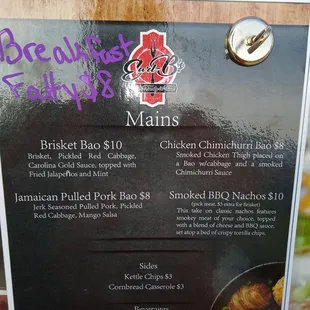 Breakfast
Fatty $8
Mains
Brisket Bao $10
Brisket, Pickled Red Cabbage,
Carolina Gold Sauce, topped with
Fried Jalapeños and Mint
Chicken Chimichurri Bao $8
Smoked Chicken Thigh placed on
a Bao w/cabbage and a smoked
Chimichurri Sauce
Jamaican Pulled Pork Bao $8
Jerk Seasoned Pulled Pork, Pickled
Red Cabbage, Mango Salsa
Smoked BBQ Nachos $10
(pick meat, $3 extra for brisket)
This take on classic nachos features
smokey meat of your choice, topped
with a blend of cheese and BBQ sauce,
set atop a bed of crispy tortilla chips.
Sides
Kettle Chips $3
Cornbread Casserole $3
Beverages